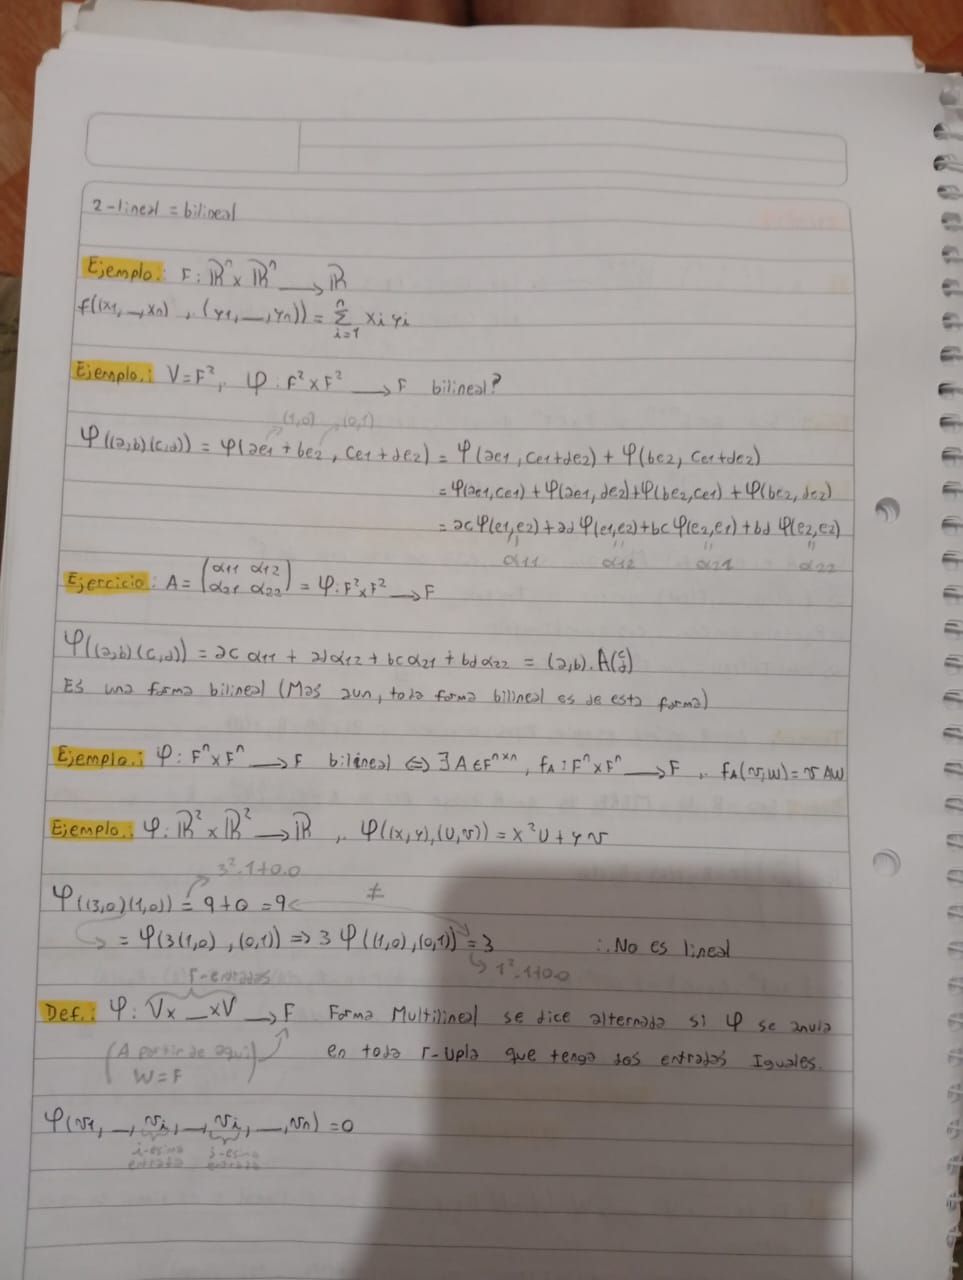 2-lineal = bilineal
Ejemplo: F: ℝⁿ × ℝⁿ ⟶ ℝ
f((x1, _, xn) , (y1, _, yn)) = Σ_{i=1}^{n} xi yi
Ejemplo: V = F², φ : F² × F² ⟶ F bilineal?
(1,0) (0,1)
φ((a,b)(c,d)) = φ(ae1 + be2, ce1 + de2) = φ(ae1, ce1+de2) + φ(be2, ce1+de2)
= φ(ae1, ce1) + φ(ae1, de2) + φ(be2, ce1) + φ(be2, de2)
= ac φ(e1, e2) + ad φ(e1, e2) + bc φ(e2, e1) + bd φ(e2, e2)
α11 α12 α21 α22
Ejercicio: A = (α11 α12
α21 α22) = φ: F² × F² ⟶ F
φ((a,b)(c,d)) = ac α11 + ad α12 + bc α21 + bd α22 = (a,b). A(c d)
Es una forma bilineal (Mas aun, toda forma bilineal es de esta forma)
Ejemplo: φ: Fⁿ × Fⁿ ⟶ F bilineal ⇔ ∃ A ∈ Fⁿˣⁿ, fA : Fⁿ × Fⁿ ⟶ F , fA(v, w) = v A w
Ejemplo: φ: ℝ² × ℝ² ⟶ ℝ , φ((x,y),(u,v)) = x²u + yv
3².1+0.0
φ((3,0)(1,0)) = 9+0 = 9 ≠
= φ(3(1,0), (0,1)) ⇒ 3 φ((1,0), (0,1)) = 3 ∴ No es lineal
1².1+0.0
r-entradas
Def.: φ: V× _ ×V ⟶ F Forma Multilineal se dice alternada si φ se anula
(A partir de aqui W = F) en toda r-upla que tenga dos entradas Iguales.
φ(v1, _, vi, _, vi, _, vn) = 0
i-esima entrada j-esima entrada